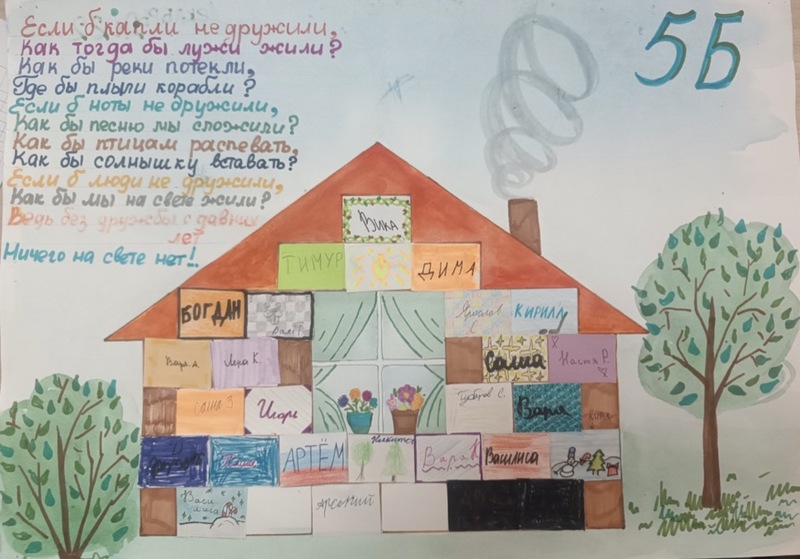 Если б капли не дружили,
Как тогда бы лужи жили?
Как бы реки потекли,
Где бы плыли корабли?
Если б ноты не дружили,
Как бы песню мы сложили?
Как бы птицам распевать,
Как бы солнышку вставать?
Если б люди не дружили,
Как бы мы на свете жили?
Ведь без дружбы с давних
лет
Ничего на свете нет!
5Б
Вика
ТИМУР
ДИМА
БОГДАН
Ярослав С.
КИРИЛЛ
Варя А.
Лера К.
Саша
Настя Р.
Саша З
Игорь
Варя
АРТЁМ
Варя К
Василиса
Василиса
АРСЕНИЙ